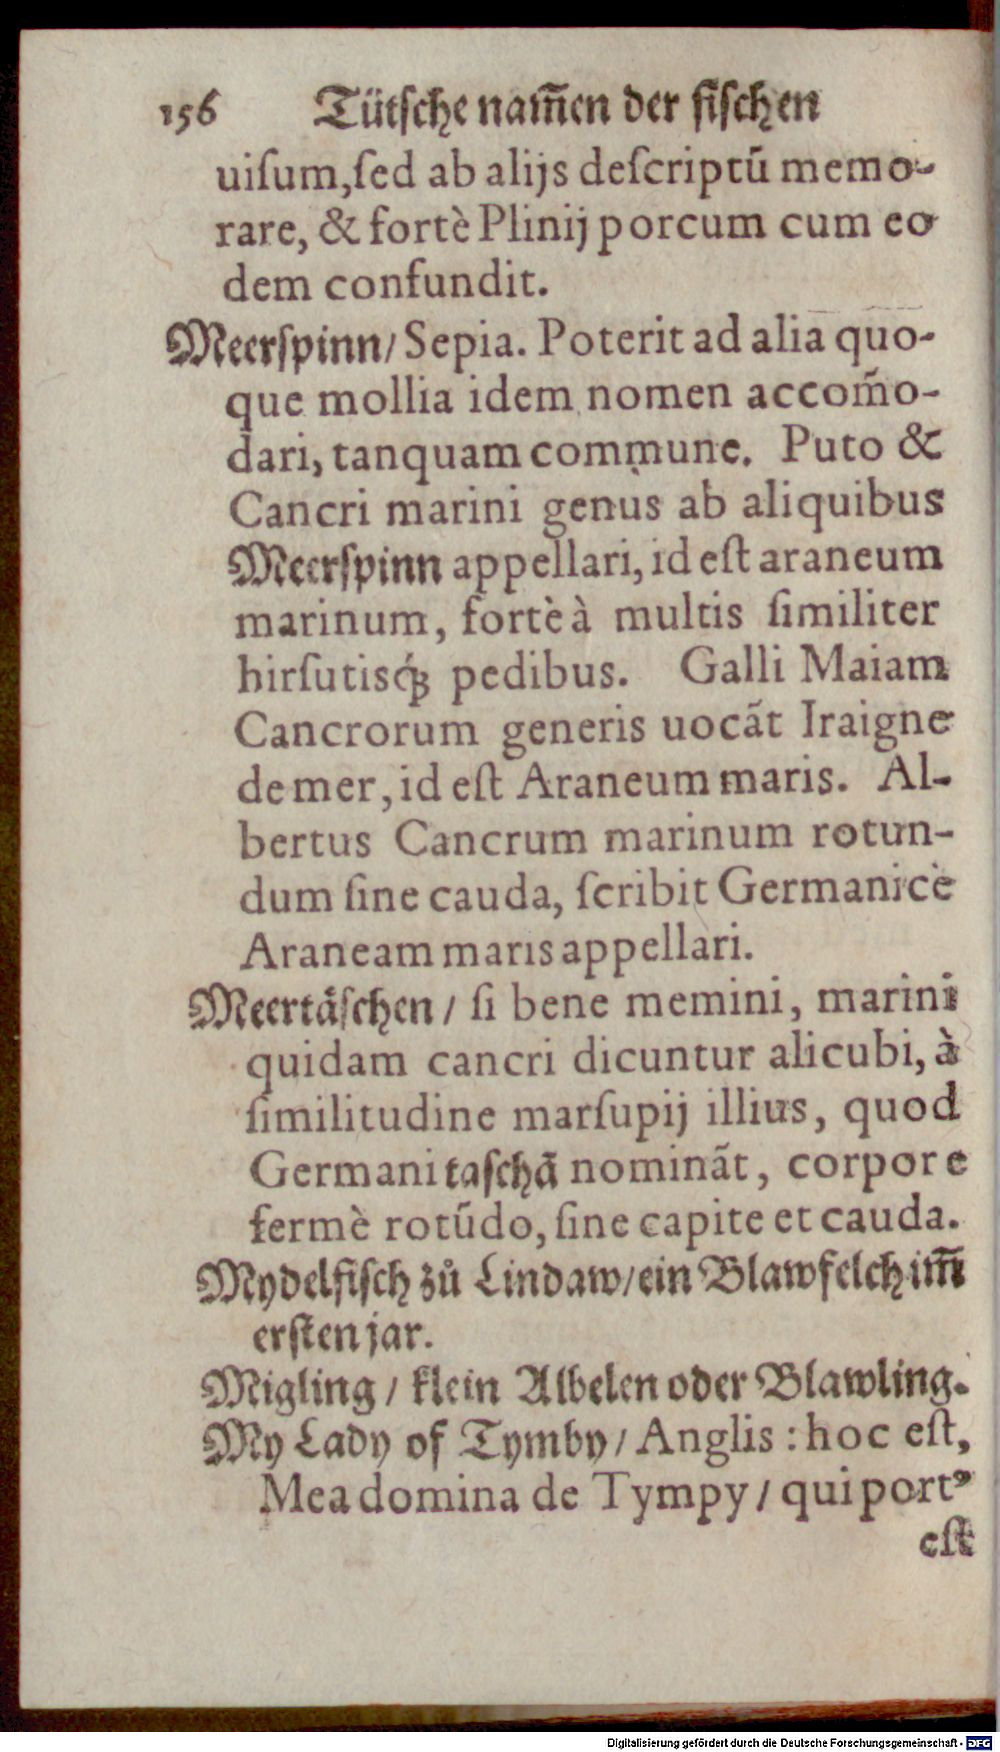 156 Tütsche nam̅en der fischen
uiſum, ſed ab alijs deſcriptũ memo-
rare, & fortè Plinij porcum cum eo
dem confundit.
Meerſpinn/ Sepia. Poterit ad alia quo-
que mollia idem nomen accom̃o-
dari, tanquam commune. Puto &
Cancri marini genus ab aliquibus
Meerſpinn appellari, id eſt araneum
marinum, fortè à multis ſimiliter
hirſutisq́ꝫ pedibus. Galli Maiam
Cancrorum generis uocãt Iraigne
de mer, id eſt Araneum maris. Al-
bertus Cancrum marinum rotun-
dum ſine cauda, ſcribit Germanicè
Araneam maris appellari.
Meertäſchen/ ſi bene memini, marini
quidam cancri dicuntur alicubi, à
ſimilitudine marſupij illius, quod
Germani taſchã nominãt, corpore
fermè rotũdo, ſine capite et cauda.
Mydelfiſch zů Lindaw/ ein Blawfelch im̅
erſten jar.
Migling/ klein Albelen oder Blawling.
My Lady of Tymby/ Anglis: hoc eſt,
Mea domina de Tympy/ qui portꝰ
eſt
Digitalisierung gefördert durch die Deutsche Forschungsgemeinschaft - DFG